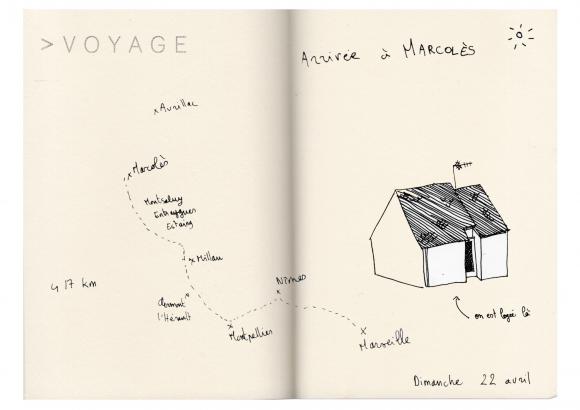 > VOYAGE
x Aurillac
x Marcolès
Montsalvy
Entraygues
Estaing
x Millau
417 km
Clermont x
l'Hérault
x
Montpellier
Nîmes
x
x
Marseille
Arrivée à MARCOLÈS
on est logés là
Dimanche 22 avril